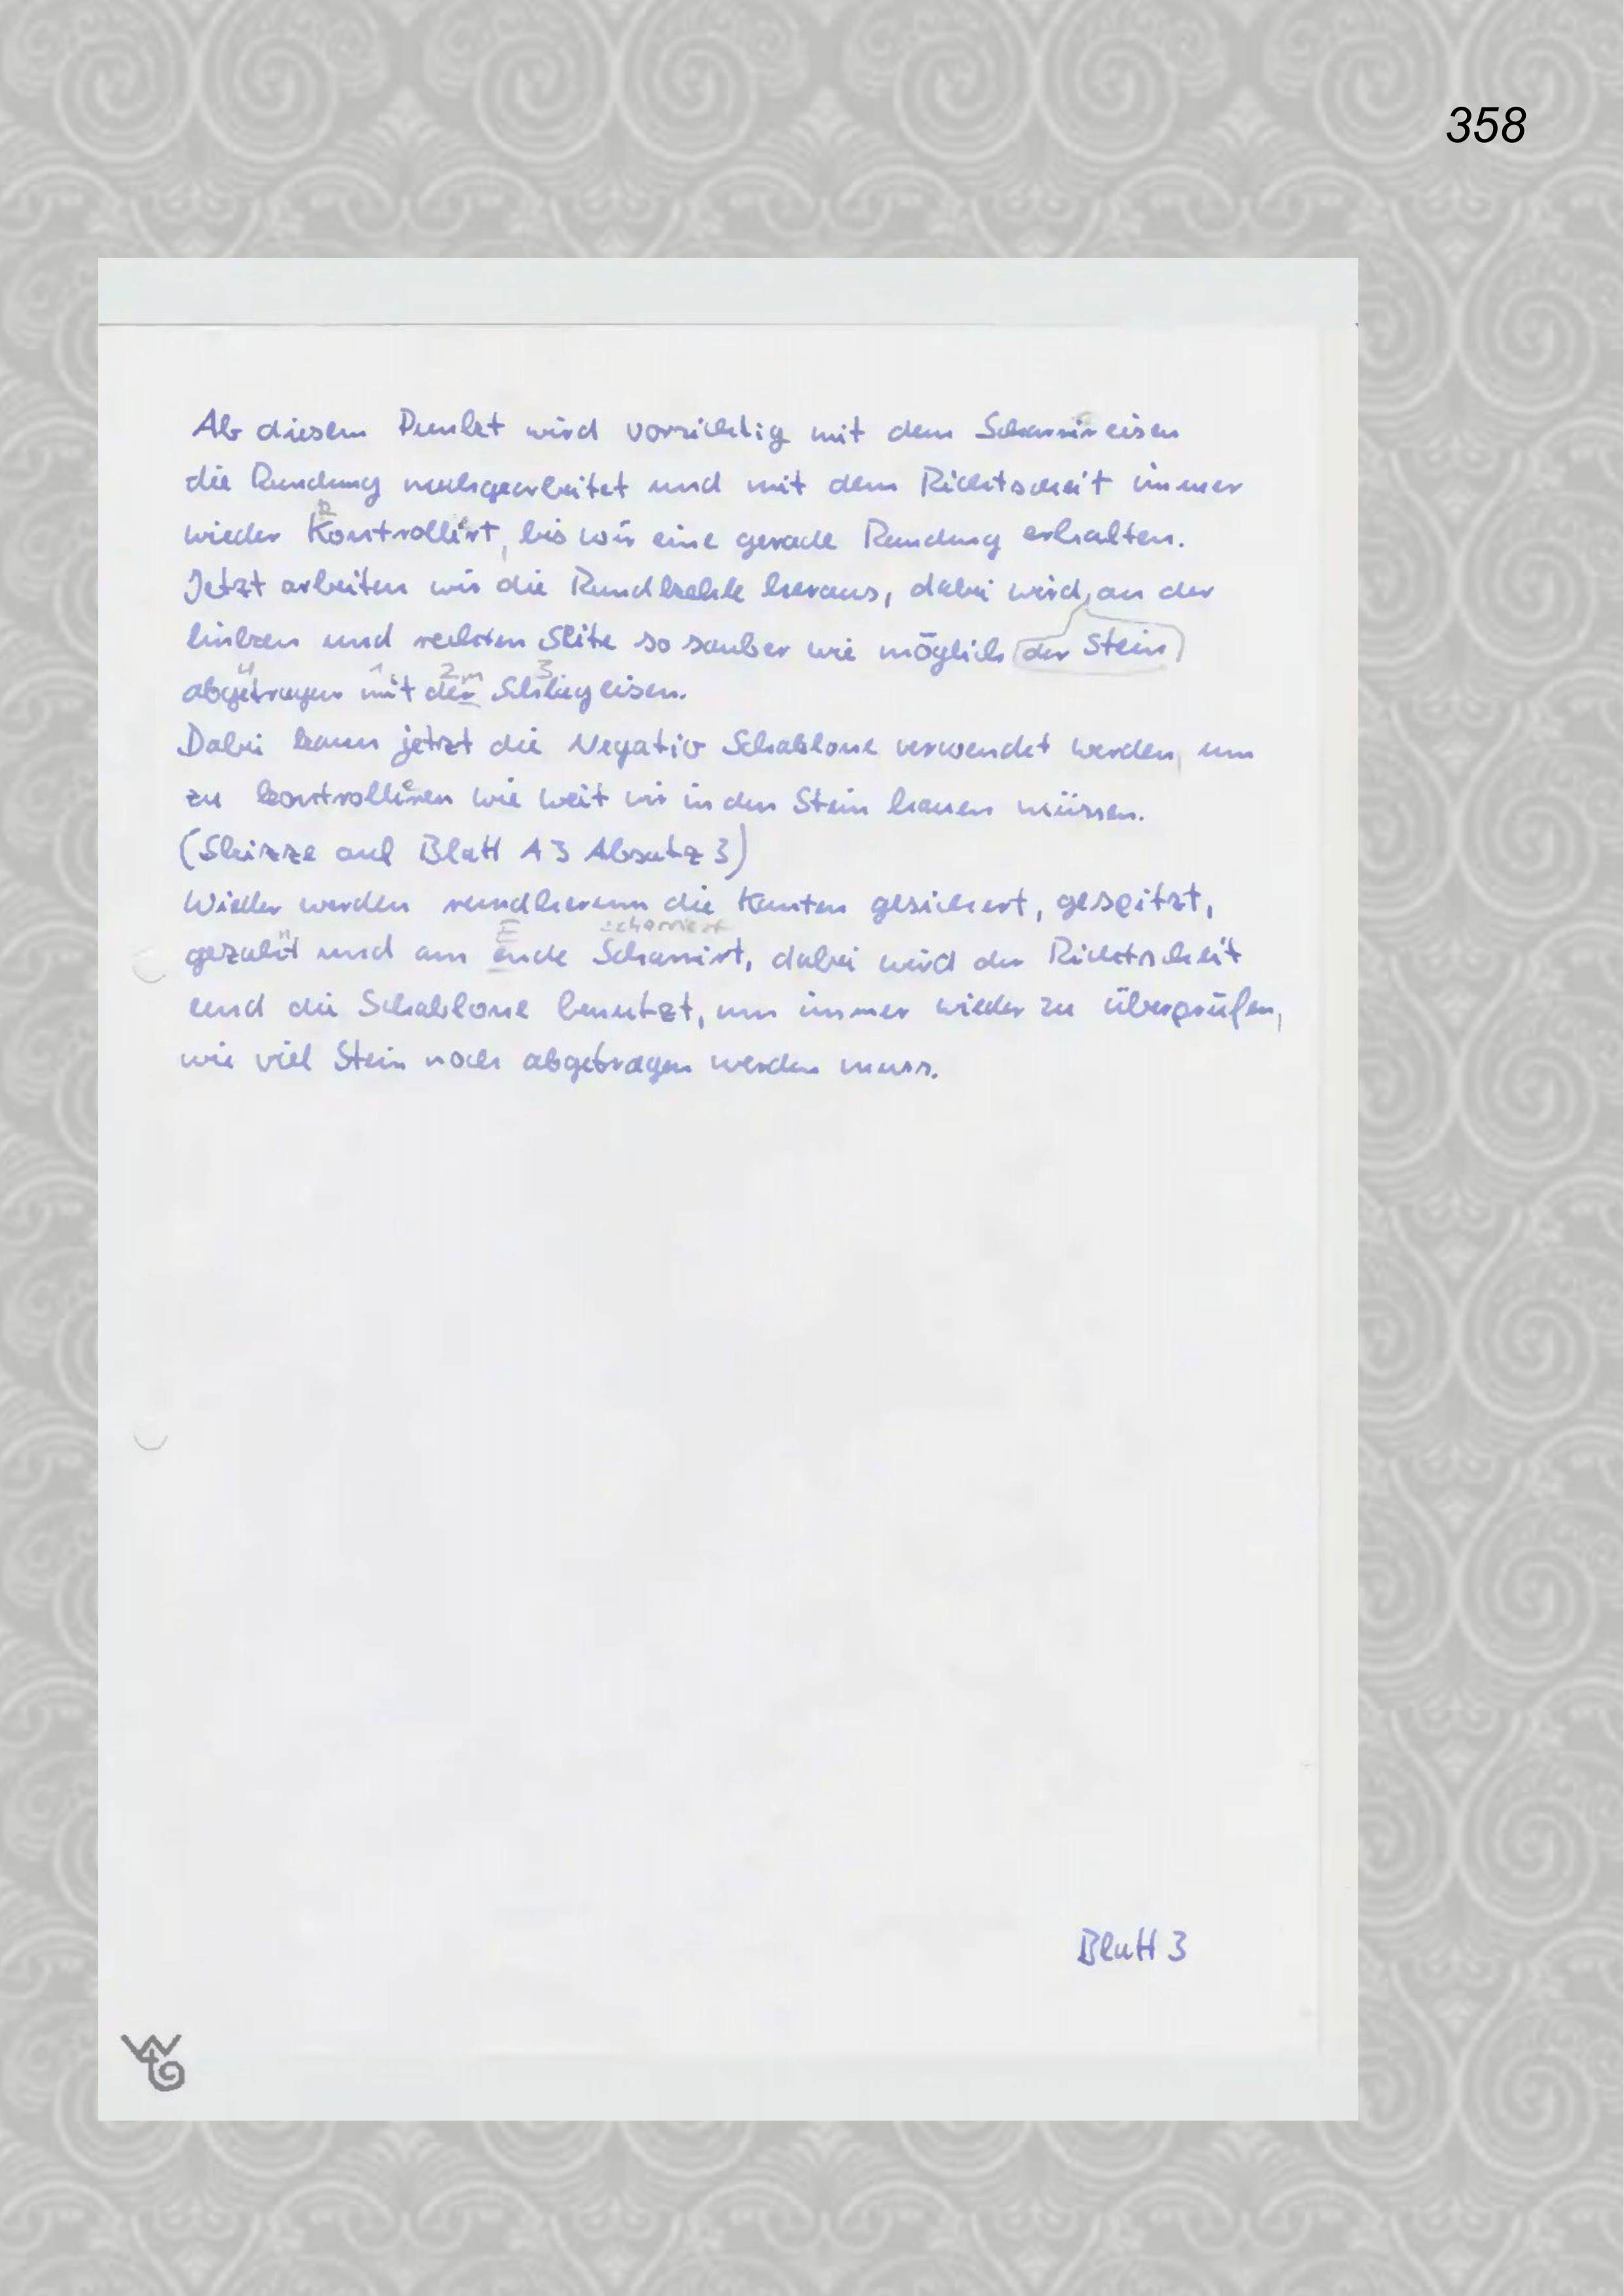 358
Ab diesem Punkt wird vorsichtig mit dem Scharrireisen
die Rundung nachgearbeitet und mit dem Richtscheit immer
wieder Kontrollirt, bis wir eine gerade Rundung erhalten.
Jetzt arbeiten wir die Rundkehle heraus, dabei wird an der
linken und rechten Seite so sauber wie möglich der Stein
abgetragen mit den Schlageisen.
Dabei kann jetzt die Negativ Schablone verwendet werden, um
zu kontrolliren wie weit wir in den Stein hauen müssen.
(Skizze auf Blatt A3 Absatz 3)
Wieder werden rundherum die Kanten gesichert, gespitzt,
E scharriert
gezahnt und am ende Scharrirt, dabei wird der Richtscheit
und die Schablone benutzt, um immer wieder zu überprüfen,
wie viel Stein noch abgetragen werden muss.
Blatt 3